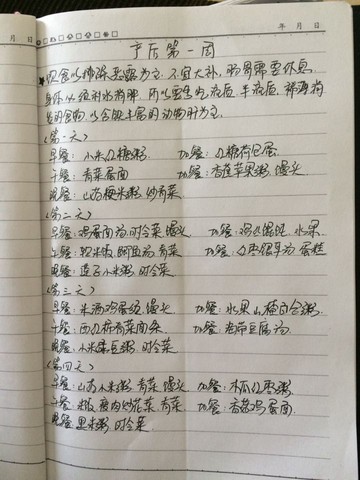 月 日
年 月 日
产后第一周
饮食以排除恶露为主,不宜大补,肠胃需要休息,
身体以组织水肿,所以要多吃流质、半流质、稀薄
的食物,以含 丰富的动物肝为主。
(第一天)
早餐:小米红糖粥 加餐:红糖荷包蛋
午餐:青菜蛋面 加餐:香蕉苹果粥、馒头
晚餐:山药粳米粥、炒青菜
(第二天)
早餐:鸡蛋面汤、时令菜、馒头 加餐:鸡汤馄饨、水果
午餐:软米饭、鲫鱼汤、青菜 加餐:红枣银耳汤、蛋糕
晚餐:莲子小米粥、时令菜
(第三天)
早餐:米汤鸡蛋 、馒头 加餐:水果、山楂百合粥
午餐:西红柿青菜面条 加餐: 豆腐汤
晚餐:小米绿豆粥、时令菜
(第四天)
早餐:山药小米粥、青菜、馒头 加餐:木瓜红枣粥
午餐:米饭、瘦肉炒花菜、青菜 加餐:香菇鸡蛋面
晚餐:黑米粥、时令菜